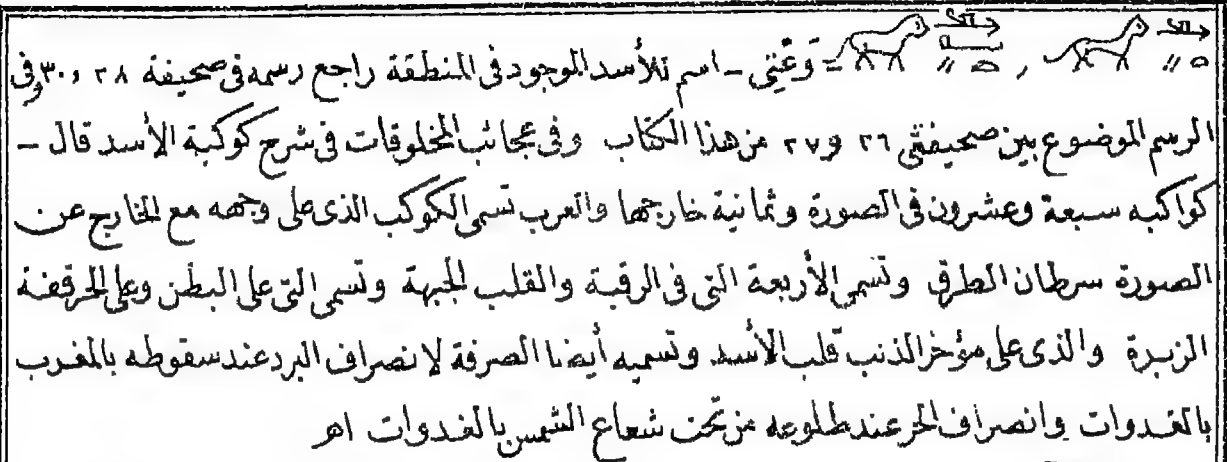 = قوعتى - اسم للأسد الموجود فى المنطقة راجع رسمه فى صحيفة ٢٨ و ٣٠ وفى
الرسم الموضوع بين صحيفتى ٢٦ و ٢٧ من هذا الكتاب وفى عجائب المخلوقات فى شرح كوكبة الأسد قال -
كواكبه سبعة وعشرون فى الصورة وثمانية خارجها والعرب تسمى الكوكب الذى على وجهه مع الخارج عن
الصورة سرطان الطرق وتسمى الأربعة التى فى الرقبة والقلب الجبهة وتسمى التى على البطن وعلى الحرقفة
الزبرة والذى على مؤخر الذنب قلب الأسد وتسميه أيضا الصرفة لانصراف البرد عند سقوطه بالمغرب
بالغدوات وانصراف الحر عند طلوعه من تحت شعاع الشمس بالغدوات اهر